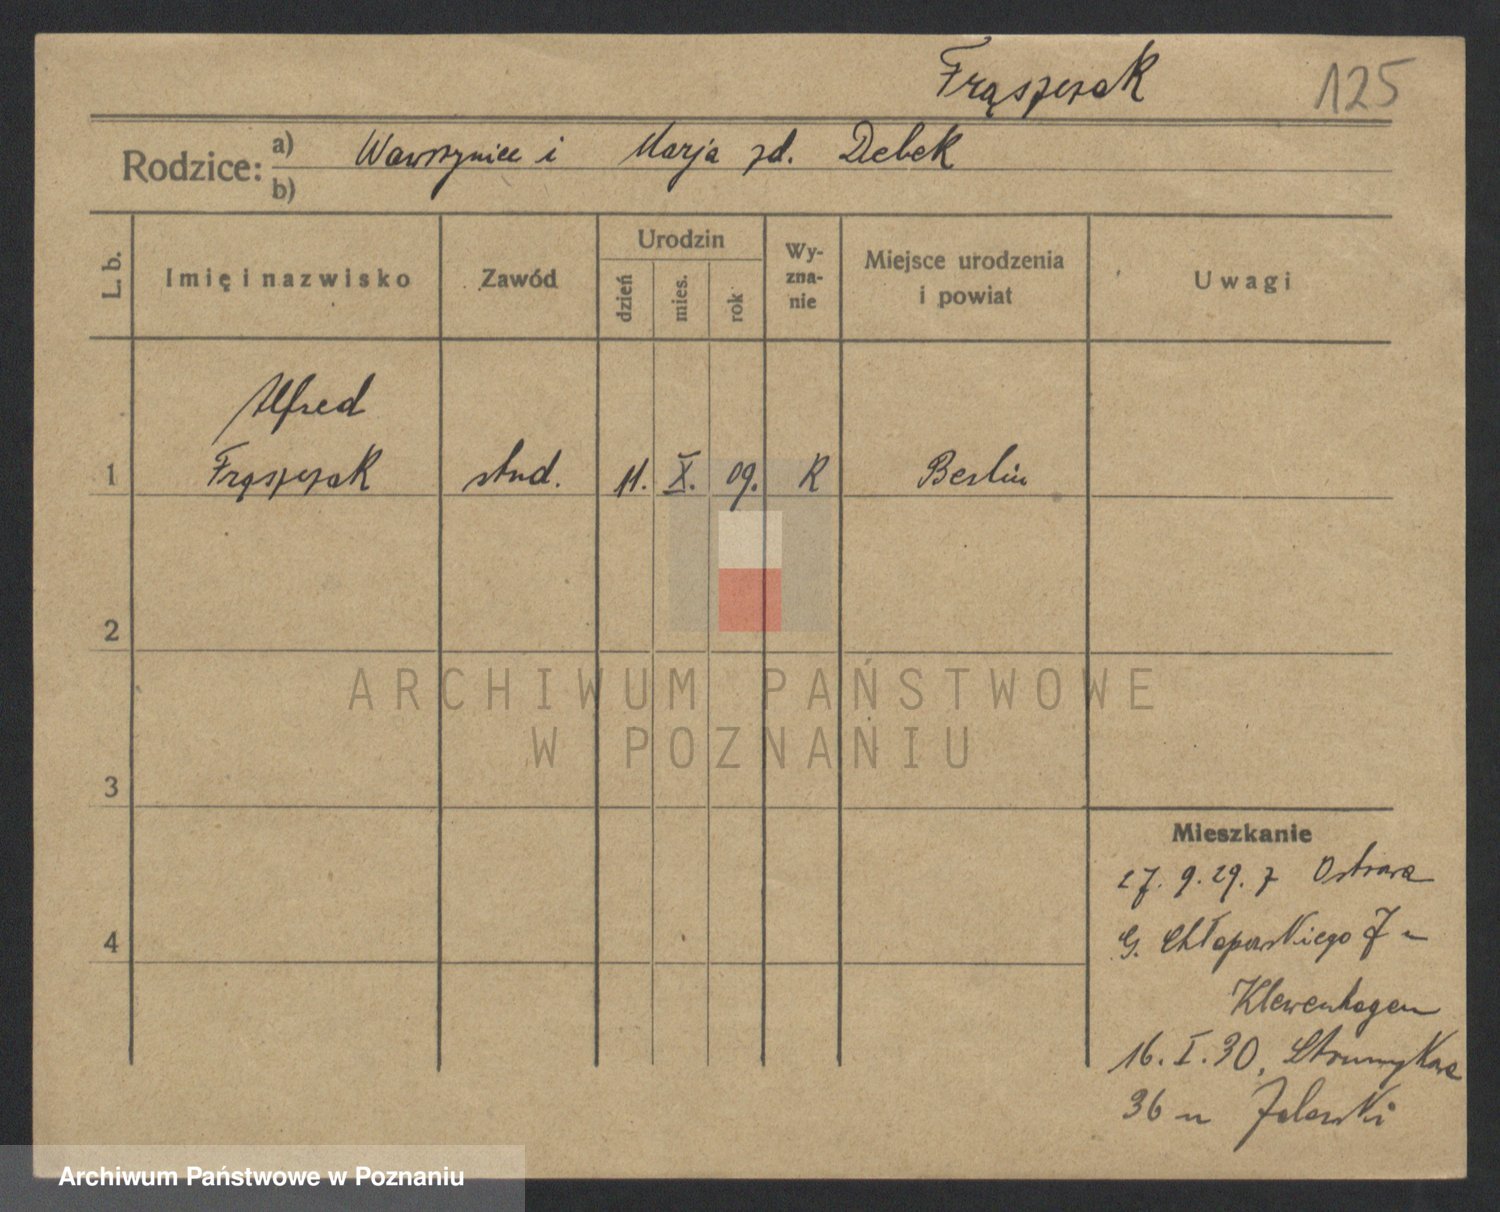 Frąszczak 125
Rodzice: a) Wawrzyniec i Marja zd. Debek
b)
L. b. Imię i nazwisko Zawód Urodzin dzień mies. rok Wy-zna-nie Miejsce urodzenia i powiat Uwagi
Alfred
1 Frąszczak stud. 11. X. 09. R Berlin
2
ARCHIWUM PAŃSTWOWE
W POZNANIU
3
Mieszkanie
27. 9. 29. z
G. Chłapowskiego 7 u
4
Klewenhagen
16. I. 30, Strumykowa
36 u
Archiwum Państwowe w Poznaniu